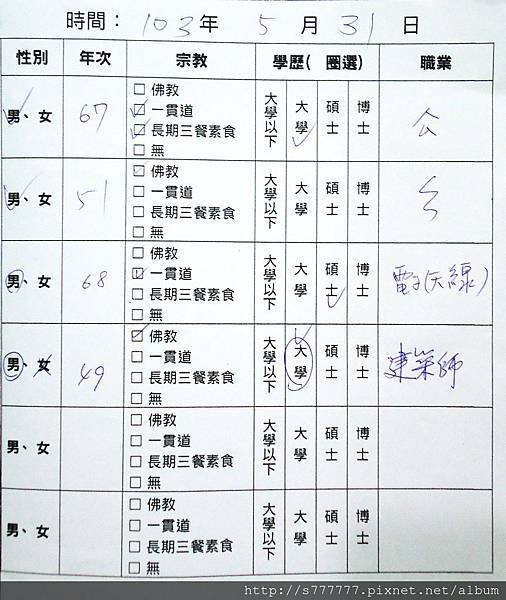 時間： 103 年 5 月 31 日
性別 年次 宗教 學歷( 圈選) 職業
男、女 67 □ 佛教 □ 一貫道 □ 長期三餐素食 □ 無 大學以下 大學 碩士 博士 公
男、女 51 □ 佛教 □ 一貫道 □ 長期三餐素食 □ 無 大學以下 大學 碩士 博士
男、女 68 □ 佛教 □ 一貫道 □ 長期三餐素食 □ 無 大學以下 大學 碩士 博士 電子(天線)
男、女 49 □ 佛教 □ 一貫道 □ 長期三餐素食 □ 無 大學以下 大學 碩士 博士 建築師
男、女 □ 佛教 □ 一貫道 □ 長期三餐素食 □ 無 大學以下 大學 碩士 博士
男、女 □ 佛教 □ 一貫道 □ 長期三餐素食 □ 無 大學以下 大學 碩士 博士
http://s777777.pixnet.net/album